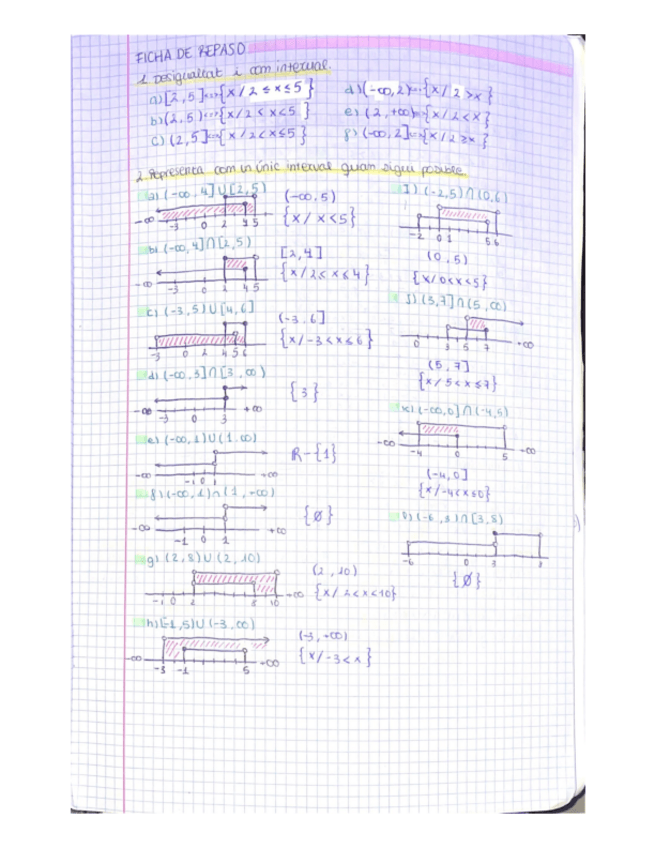 FICHA DE REPASO
1. Desigualtat i com interval.
a) [2,5] <-> {x/ 2 ≤ x ≤ 5}
b) (2,5) <-> {x/ 2 < x < 5}
c) (2,5] <-> {x/ 2 < x ≤ 5}
d) (-∞,2) <-> {x/ 2 > x}
e) (2,+∞) <-> {x/ 2 < x}
f) (-∞,2] <-> {x/ 2 ≥ x}
2. Representa com un únic interval quan sigui possible
a) (-∞,4] U [2,5)
(-∞,5)
{x/ x < 5}
-∞ -3 0 2 4 5
b) (-∞,4] ∩ [2,5)
[2,4]
{x/ 2 ≤ x ≤ 4}
-∞ -3 0 2 4 5
c) (-3,5) U [4,6]
(-3,6]
{x/ -3 < x ≤ 6}
-3 0 2 4 5 6
d) (-∞,3] ∩ [3,∞)
{3}
-∞ -3 0 3 +∞
e) (-∞,1) U (1,∞)
R-{1}
-∞ -1 0 1 -∞
f) (-∞,1) ∩ (1,+∞)
{Ø}
-∞ -1 0 1 +∞
g) (2,8) U (2,10)
(2,10)
{x/ 2 < x < 10}
-1 0 2 8 10 +∞
h) [-1,5) U (-3,∞)
(-3,+∞)
{x/ -3 < x}
-∞ -3 -1 5 -∞
I) (-2,5) ∩ (0,6)
-2 0 1 5 6
(0,5)
{x/ 0 < x < 5}
J) (3,7] ∩ (5,∞)
0 3 5 7 +∞
(5,7]
{x/ 5 < x ≤ 7}
K) (-∞,0] ∩ (-4,5)
-∞ -4 0 5 -∞
(-4,0]
{x/ -4 < x ≤ 0}
(-6,3) ∩ [3,8)
-6 0 3 8
{Ø}